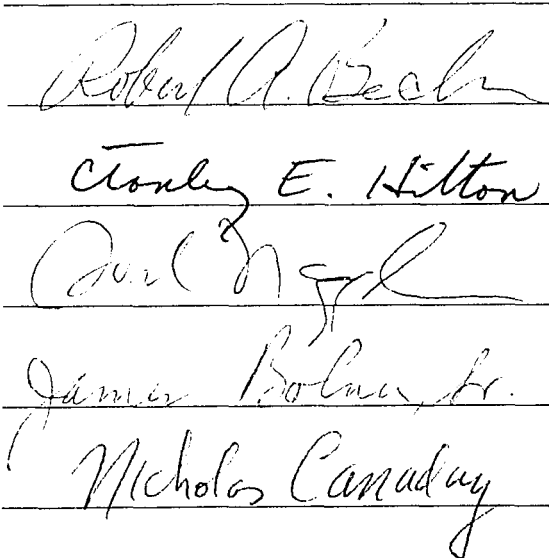 Robert A. Becker
Stanley E. Hilton
James Bolner, Sr.
Nicholas Canaday